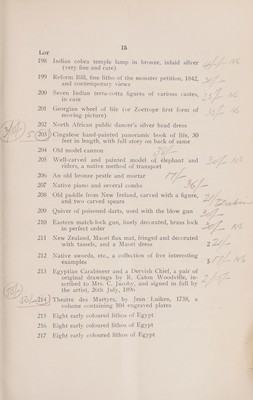 15
Lot
198 Indian cobra temple lamp in bronze, inlaid silver
(very fine and rare)
199 Reform Bill, fine litho of the monster petition, 1842,
and contemporary views
200 Seven Indian terra-cotta figures of various castes,
in case
201 Georgian wheel of life (or Zoetrope first form of
moving picture)
202 North African public dancer's silver head dress
203 Cingalese hand-painted panoramic book of life, 30
feet in length, with full story on back of same
204 Old model cannon
205 Well-carved and painted model of elephant and
riders, a native method of transport
206 An old bronze pestle and mortar
207 Native piano and several combs 36/-
208 Old paddle from New Ireland, carved with a figure,
and two carved spears
209 Quiver of poisoned darts, used with the blow gun
210 Eastern match-lock gun, finely decorated, brass lock
in perfect order
211 New Zealand, Maori flax mat, fringed and decorated
with tassels, and a Maori dress
212 Native swords, etc., a collection of five interesting
examples
213 Egyptian Carabineer and a Dervish Chief, a pair of
original drawings by R. Caton Woodville, in-
scribed to Mrs. C. Jacoby, and signed in full by
the artist, 26th July, 1896
214 Theatre des Martyrs, by Jean Luiken, 1738, a
volume containing 904 engraved plates
215 Eight early coloured lithos of Egypt
216 Eight early coloured lithos of Egypt
217 Eight early coloured lithos of Egypt